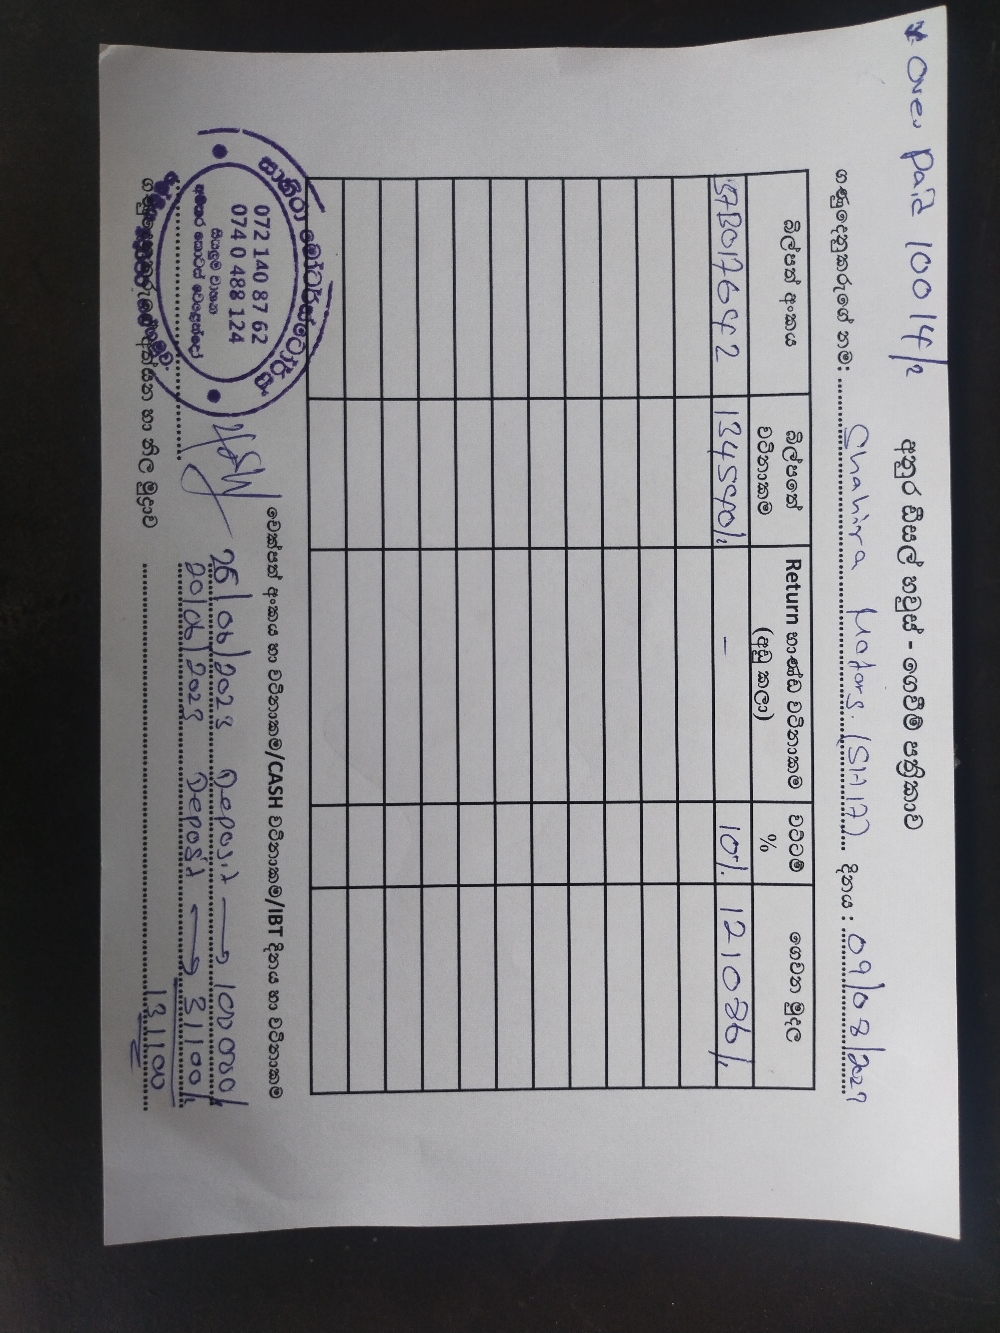 * Over paid 10014/=
අනුර ඩීසල් හවුස් - ගෙවීම් පත්‍රිකාව
ගණුදෙනුකරුගේ නම: Shahira Motors. (SH17) දිනය: 09/08/2023
බිල්පත් අංකය බිල්පතේ වටිනාකම Return භාණ්ඩ වටිනාකම (අඩු කලා) වට්ටම් % ගෙවන මුදල
134540/= - 10%. 121086/=
චෙක්පත් අංකය හා වටිනාකම/CASH වටිනාකම/IBT දිනය හා වටිනාකම
26/06/2023 Deposit → 100000/=
20/06/2023 Deposit → 31100/=
131100
ගණුදෙනුකරුගේ අත්සන හා නිල මුද්‍රාව
072 140 87 62
සියලුම වාහන
074 0 488 124